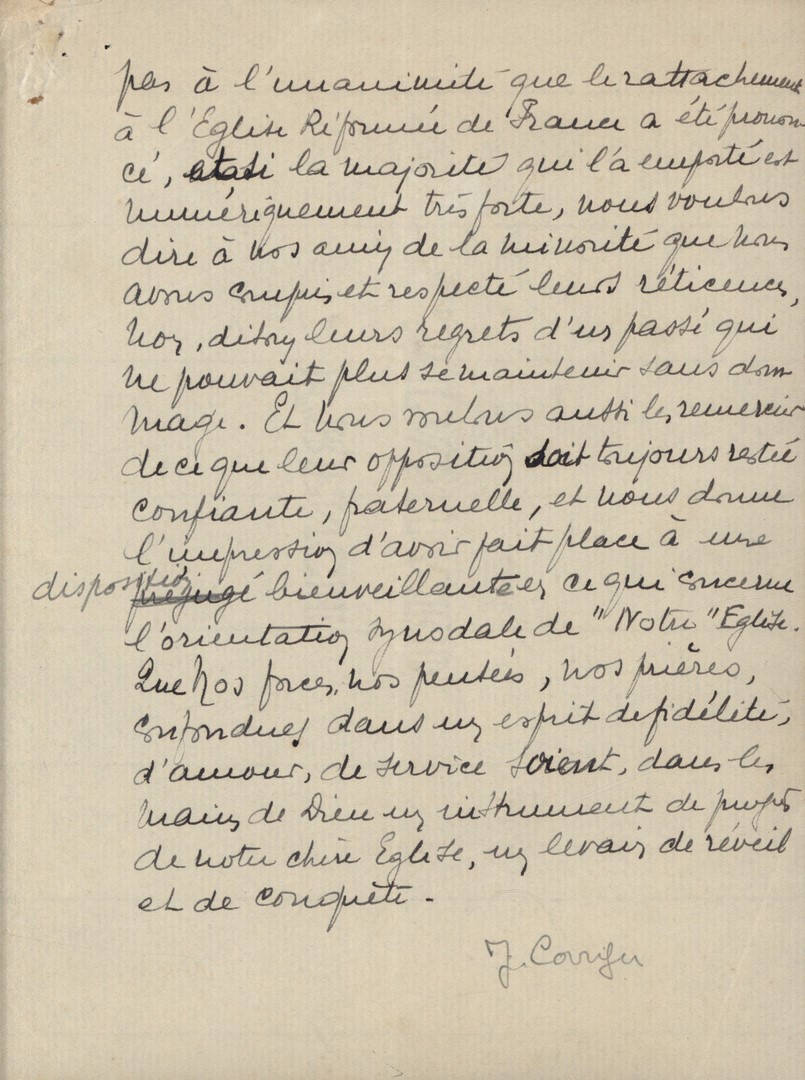 pas à l'unanimité que le rattachement
à l'Eglise Réformée de France a été pronon-
cé, et si la majorité qui l'a emporté est
numériquement très forte, nous voulons
dire à nos amis de la minorité que nous
avons compris et respecté leurs réticences,
non, disons leurs regrets d'un passé qui
ne pouvait plus se maintenir sans dom
mage. Et nous voulons aussi les remercier
de ce que leur opposition soit toujours restée
confiante, fraternelle, et nous donne
l'impression d'avoir fait place à une
disposition préjugé bienveillante en ce qui concerne
l'orientation synodale de "Notre" Eglise.
Que nos forces, nos pensées, nos prières,
confondues dans un esprit de fidélité,
d'amour, de service soient, dans les
mains de Dieu un instrument de progrès
de notre chère Eglise, un levain de réveil
et de conquête.